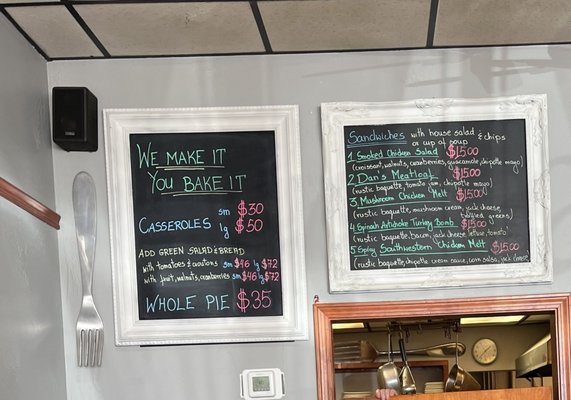 WE MAKE IT
YOU BAKE IT
CASSEROLES sm $30
lg $50
ADD GREEN SALAD & BREAD
with tomatoes & croutons sm $46 lg $72
with fruit, walnuts, cranberries sm $46 lg $72
WHOLE PIE $35
Sandwiches with house salad & chips
or cup of soup
1. Smoked Chicken Salad $15.00
(croissant, walnuts, cranberries, guacamole, chipotle mayo)
2. Dan's Meatloaf $15.00
(rustic baguette, tomato jam, chipotle mayo)
3. Mushroom Chicken Melt $15.00
(rustic baguette, mushroom cream, jack cheese,
greens)
4. Spinach Artichoke Turkey Bomb $15.00
(rustic baguette, bacon, jack cheese, lettuce, tomato)
5. Spicy Southwestern Chicken Melt $15.00
(rustic baguette, chipotle cream sauce, corn salsa, jack cheese)